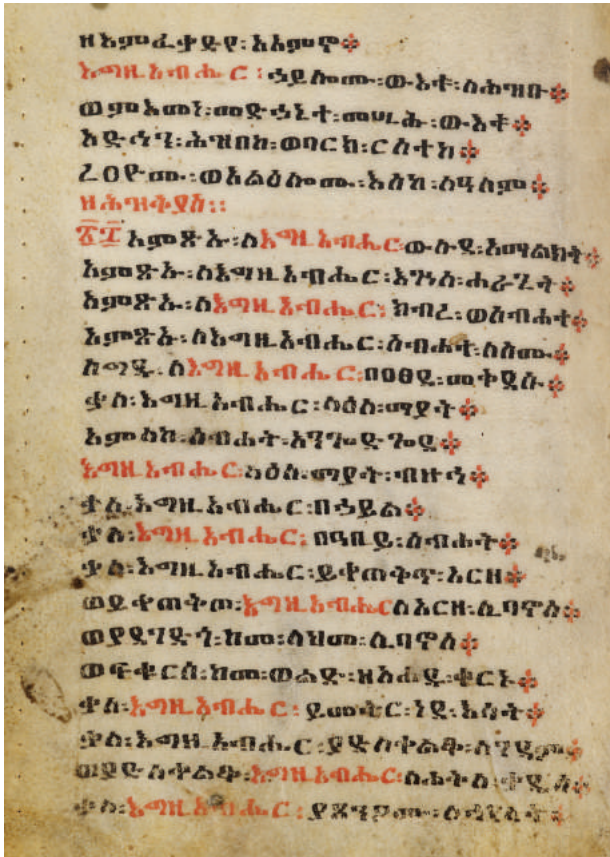 ዘእምፈቃድየ፡አአምኖ፨
እግዚአብሔር፡ኃይሎሙ፡ውእቱ፡ለሕዝቡ፨
ወምእመነ፡መድኃኒተ፡መሢሑ፡ውእቱ፨
አድኅን፡ሕዝበከ፡ወባርክ፡ርስተከ፨
ረዐዮሙ፡ወአልዕሎሙ፡እስከ፡ለዓለም፨
ዘሕዝቅያስ፡፡
፳፰ አምጽኡ፡ለእግዚአብሔር፡ውሉደ፡አማልክት
አምጽኡ፡ለእግዚአብሔር፡እጐለ፡ሐራጊት፨
አምጽኡ፡ለእግዚአብሔር፡ክብረ፡ወስብሐተ፨
አምጽኡ፡ለእግዚአብሔር፡ስብሐተ፡ለስሙ፨
ስግዱ፡ለእግዚአብሔር፡በዐፀደ፡መቅደሱ፨
ቃለ፡እግዚአብሔር፡ላዕለ፡ማያት፨
አምላከ፡ስብሐት፡አንጐድጐደ፨
እግዚአብሔር፡ላዕለ፡ማያት፡ብዙኅ፨
ቃለ፡እግዚአብሔር፡በኃይል፨
ቃለ፡እግዚአብሔር፡በዓቢይ፡ስብሐት፨
ቃለ፡እግዚአብሔር፡ይቀጠቅጥ፡አርዘ፨
ወይቀጠቅጦ፡እግዚአብሔር፡ለአርዘ፡ሊባኖስ፨
ወያደግድጎ፡ከመ፡ላህመ፡ሊባኖስ፨
ወፍቁርሰ፡ከመ፡ወልድ፡ዘአሐዱ፡ቀርኑ፨
ቃለ፡እግዚአብሔር፡ይመትር፡ነደ፡እሳት፨
ቃለ፡እግዚአብሔር፡ያድለቀልቆ፡ለገዳም፨
ወያድለቀልቆ፡እግዚአብሔር፡ለሐቅለ፡ቃዴስ፨
ቃለ፡እግዚአብሔር፡ያጸንዖሙ፡ለኀየላት፨